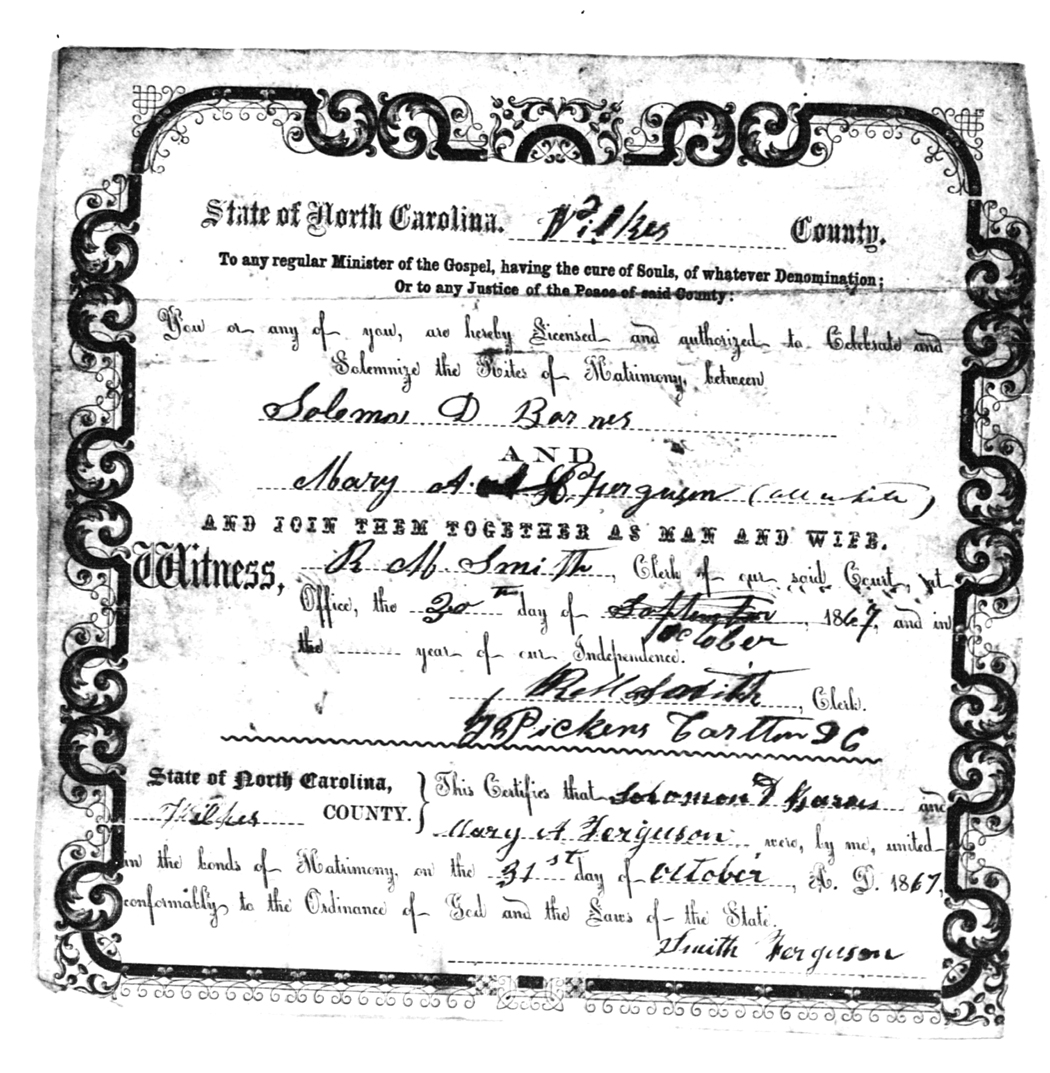 State of North Carolina. Wilkes County.
To any regular Minister of the Gospel, having the cure of Souls, of whatever Denomination;
Or to any Justice of the Peace of said County:
You or any of you, are hereby Licensed and authorized to Celebrate and
Solemnize the Rites of Matrimony, between
Solomon D Barnes
AND
Mary A. Ferguson (all white)
AND JOIN THEM TOGETHER AS MAN AND WIFE.
Witness, R M. Smith, Clerk of our said Court, at
Office, the 30th day of September, 1867, and in
October
the year of our Independence.
R M Smith, Clerk.
Pickens Carlton D C
State of North Carolina,
Wilkes COUNTY.
This Certifies that Solomon D Barnes and
Mary A Ferguson were, by me, united
in the bonds of Matrimony, on the 31st day of October, A. D. 1867,
conformably to the Ordinance of God and the Laws of the State.
Smith Ferguson